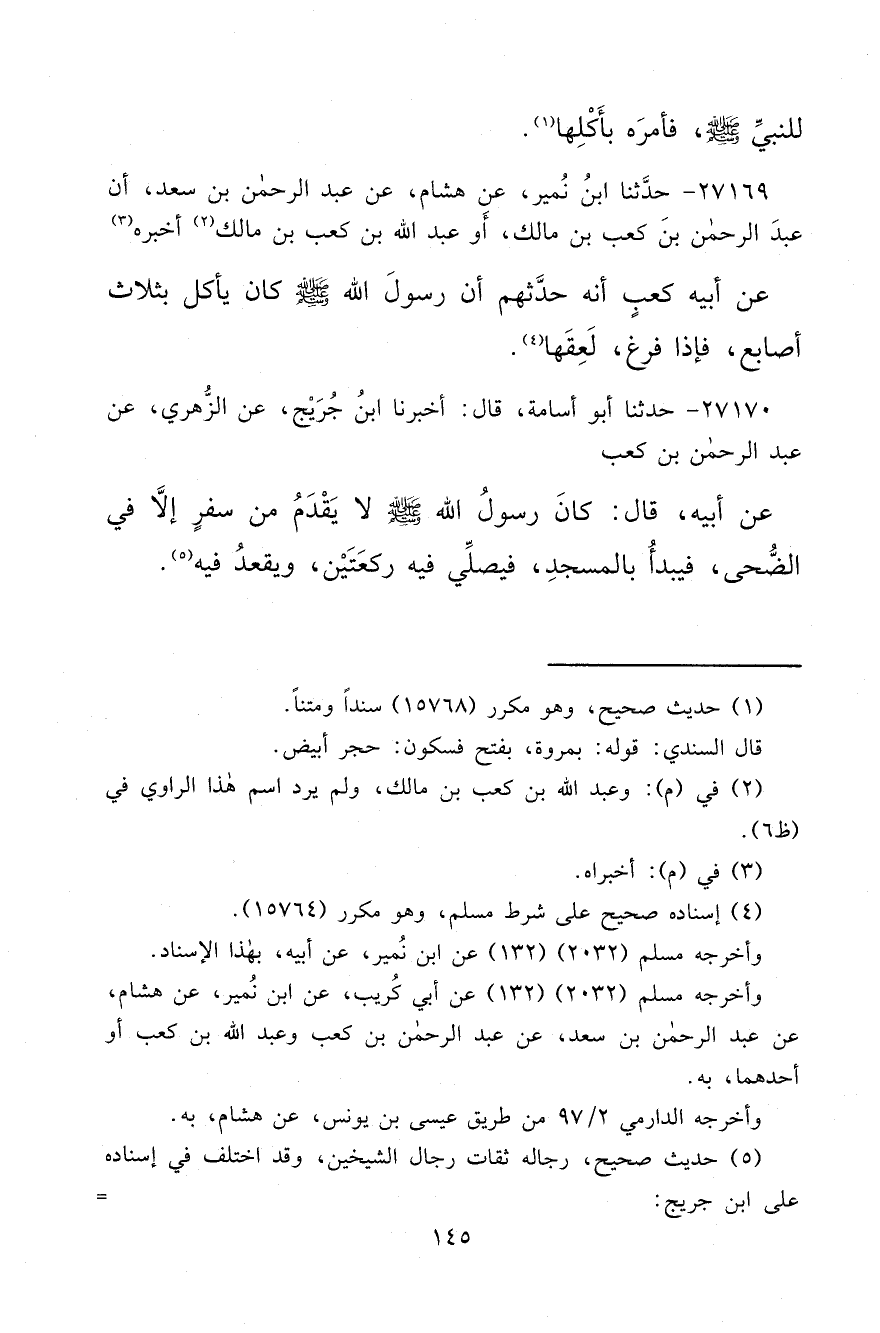 للنبيِّ ﷺ، فأمرَه بأَكْلِها(١).
٢٧١٦٩- حدَّثنا ابنُ نُمير، عن هشام، عن عبد الرحمٰن بن سعد، أن
عبدَ الرحمٰن بنَ كعب بن مالك، أَو عبد الله بن كعب بن مالك(٢) أخبره(٣)
عن أبيه كعبٍ أنه حدَّثهم أن رسولَ الله ﷺ كان يأكل بثلاث
أصابع، فإذا فرغ، لَعِقَها(٤).
٢٧١٧٠- حدثنا أبو أسامة، قال: أخبرنا ابنُ جُرَيْج، عن الزُّهري، عن
عبد الرحمٰن بن كعب
عن أبيه، قال: كانَ رسولُ الله ﷺ لا يَقْدَمُ من سفرٍ إلَّا في
الضُّحى، فيبدأُ بالمسجدِ، فيصلِّي فيه ركعَتَيْن، ويقعدُ فيه(٥).
(١) حديث صحيح، وهو مكرر (١٥٧٦٨) سنداً ومتناً.
قال السندي: قوله: بمروة، بفتح فسكون: حجر أبيض.
(٢) في (م): وعبد الله بن كعب بن مالك، ولم يرد اسم هٰذا الراوي في
(ظ٦).
(٣) في (م): أخبراه.
(٤) إسناده صحيح على شرط مسلم، وهو مكرر (١٥٧٦٤).
وأخرجه مسلم (٢٠٣٢) (١٣٢) عن ابن نُمير، عن أبيه، بهٰذا الإسناد.
وأخرجه مسلم (٢٠٣٢) (١٣٢) عن أبي كُريب، عن ابن نُمير، عن هشام،
عن عبد الرحمٰن بن سعد، عن عبد الرحمٰن بن كعب وعبد الله بن كعب أو
أحدهما، به.
وأخرجه الدارمي ٩٧/٢ من طريق عيسى بن يونس، عن هشام، به.
(٥) حديث صحيح، رجاله ثقات رجال الشيخين، وقد اختلف في إسناده
على ابن جريج: =
١٤٥